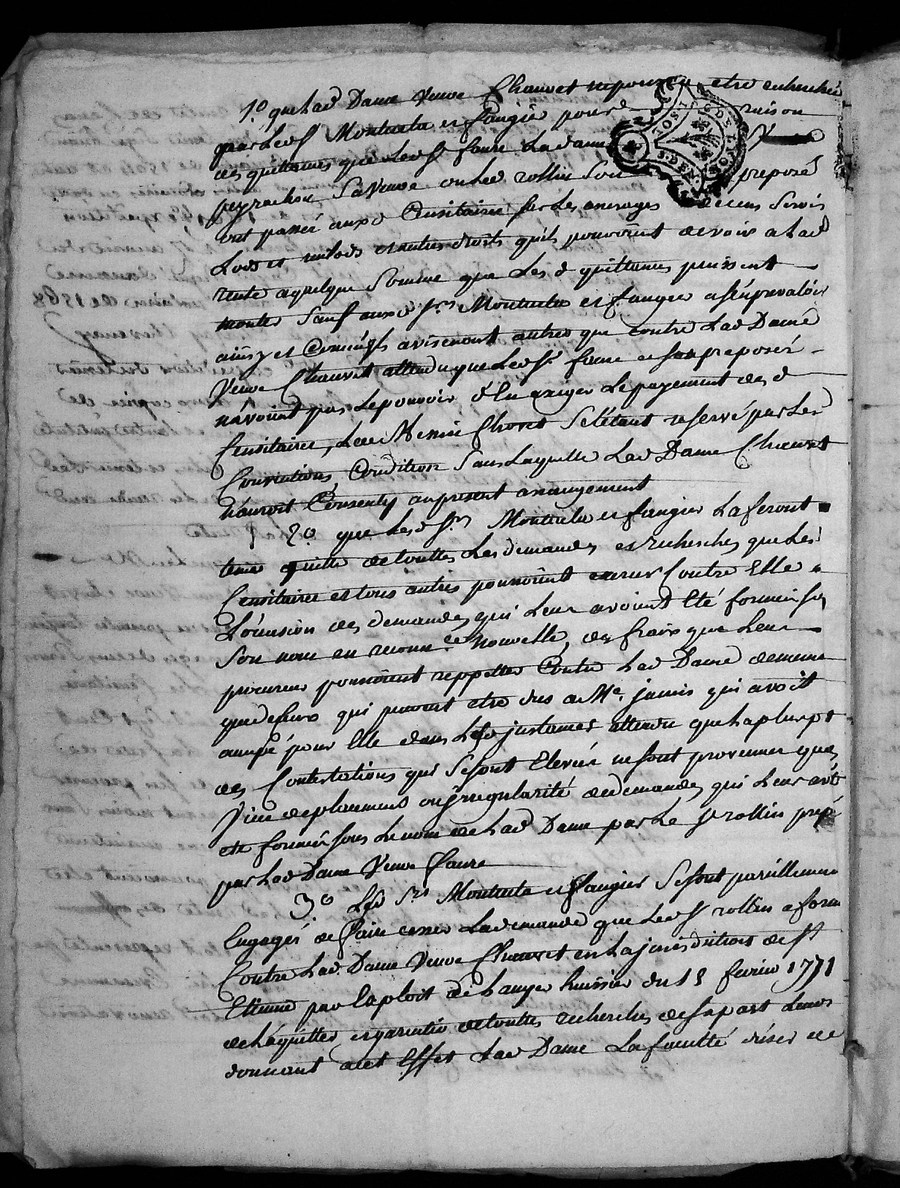 1º. que lad Dame Veuve Chauvet ne pourra etre recherchée
par les Srs Montuclu et fangier pour raison
des quittances que le Sr faure La dame
peyrachon Sa Veuve ou led rollin Son preposé
ont passée aux d Censitaires sur Les arrerages de cens Servis
Lods et milods et autres droits qu'ils pouvoient devoir a Lad
rente a quelque Somme que Les d quittances puissent
monter Sauf aux d Srs Montuclu et fangier a S'en prevaloir
ainsy et Comme ils aviseront autres que contre Lad Dame
Veuve Chauvet attendu que led Sr faure et Son preposé
n'avoient pas Le pouvoir d'En exiger Le payement des d
Censitaires, Led Messire Choret S'étant reservé par Les
Conventions, Condition Sans Laquelle Lad Dame Chauvet
n'auroit Consenty au present arrangement
2º. que Les d Srs Montuclu et fangier La feront
tenir quitte de touttes Les demandes et recherches que Les
Censitaires et tous autres pourroient exercer Contre Elle a
L'occasion des demandes qui Leur avoient Eté formées Sous
Son nom en reconnce Nouvelle, des frais que Leurs
procureurs pourroient reppetter Contre Lad Dame de meme
que de ceux qui peuvent etre dus a Me. jamis qui avoit
occupé pour Elle dans Les d justances attendu que La plus pt
des Contestations qui Se sont Elevées ne sont provenues que
Vice de ou irregularité de demandes qui Leur ont
eté formées Sous Le nom de Lad Dame par Le Sr rollin preposé
par Lad Dame Veuve faure
3º. Les d Srs Montuclu et fangier Se sont pareillement
Engagés de faire cesser La demande que led Sr rollin a formé
Contre Lad Dame Veuve Chauvet en La jurisdiction de St
Etienne par Exploit de hanger huissier du 15 fevrier 1771
de L'aquitter et garantir de touttes recherches de Sa part Leurs
donnant a cet Effet Lad Dame La faculté d'user de